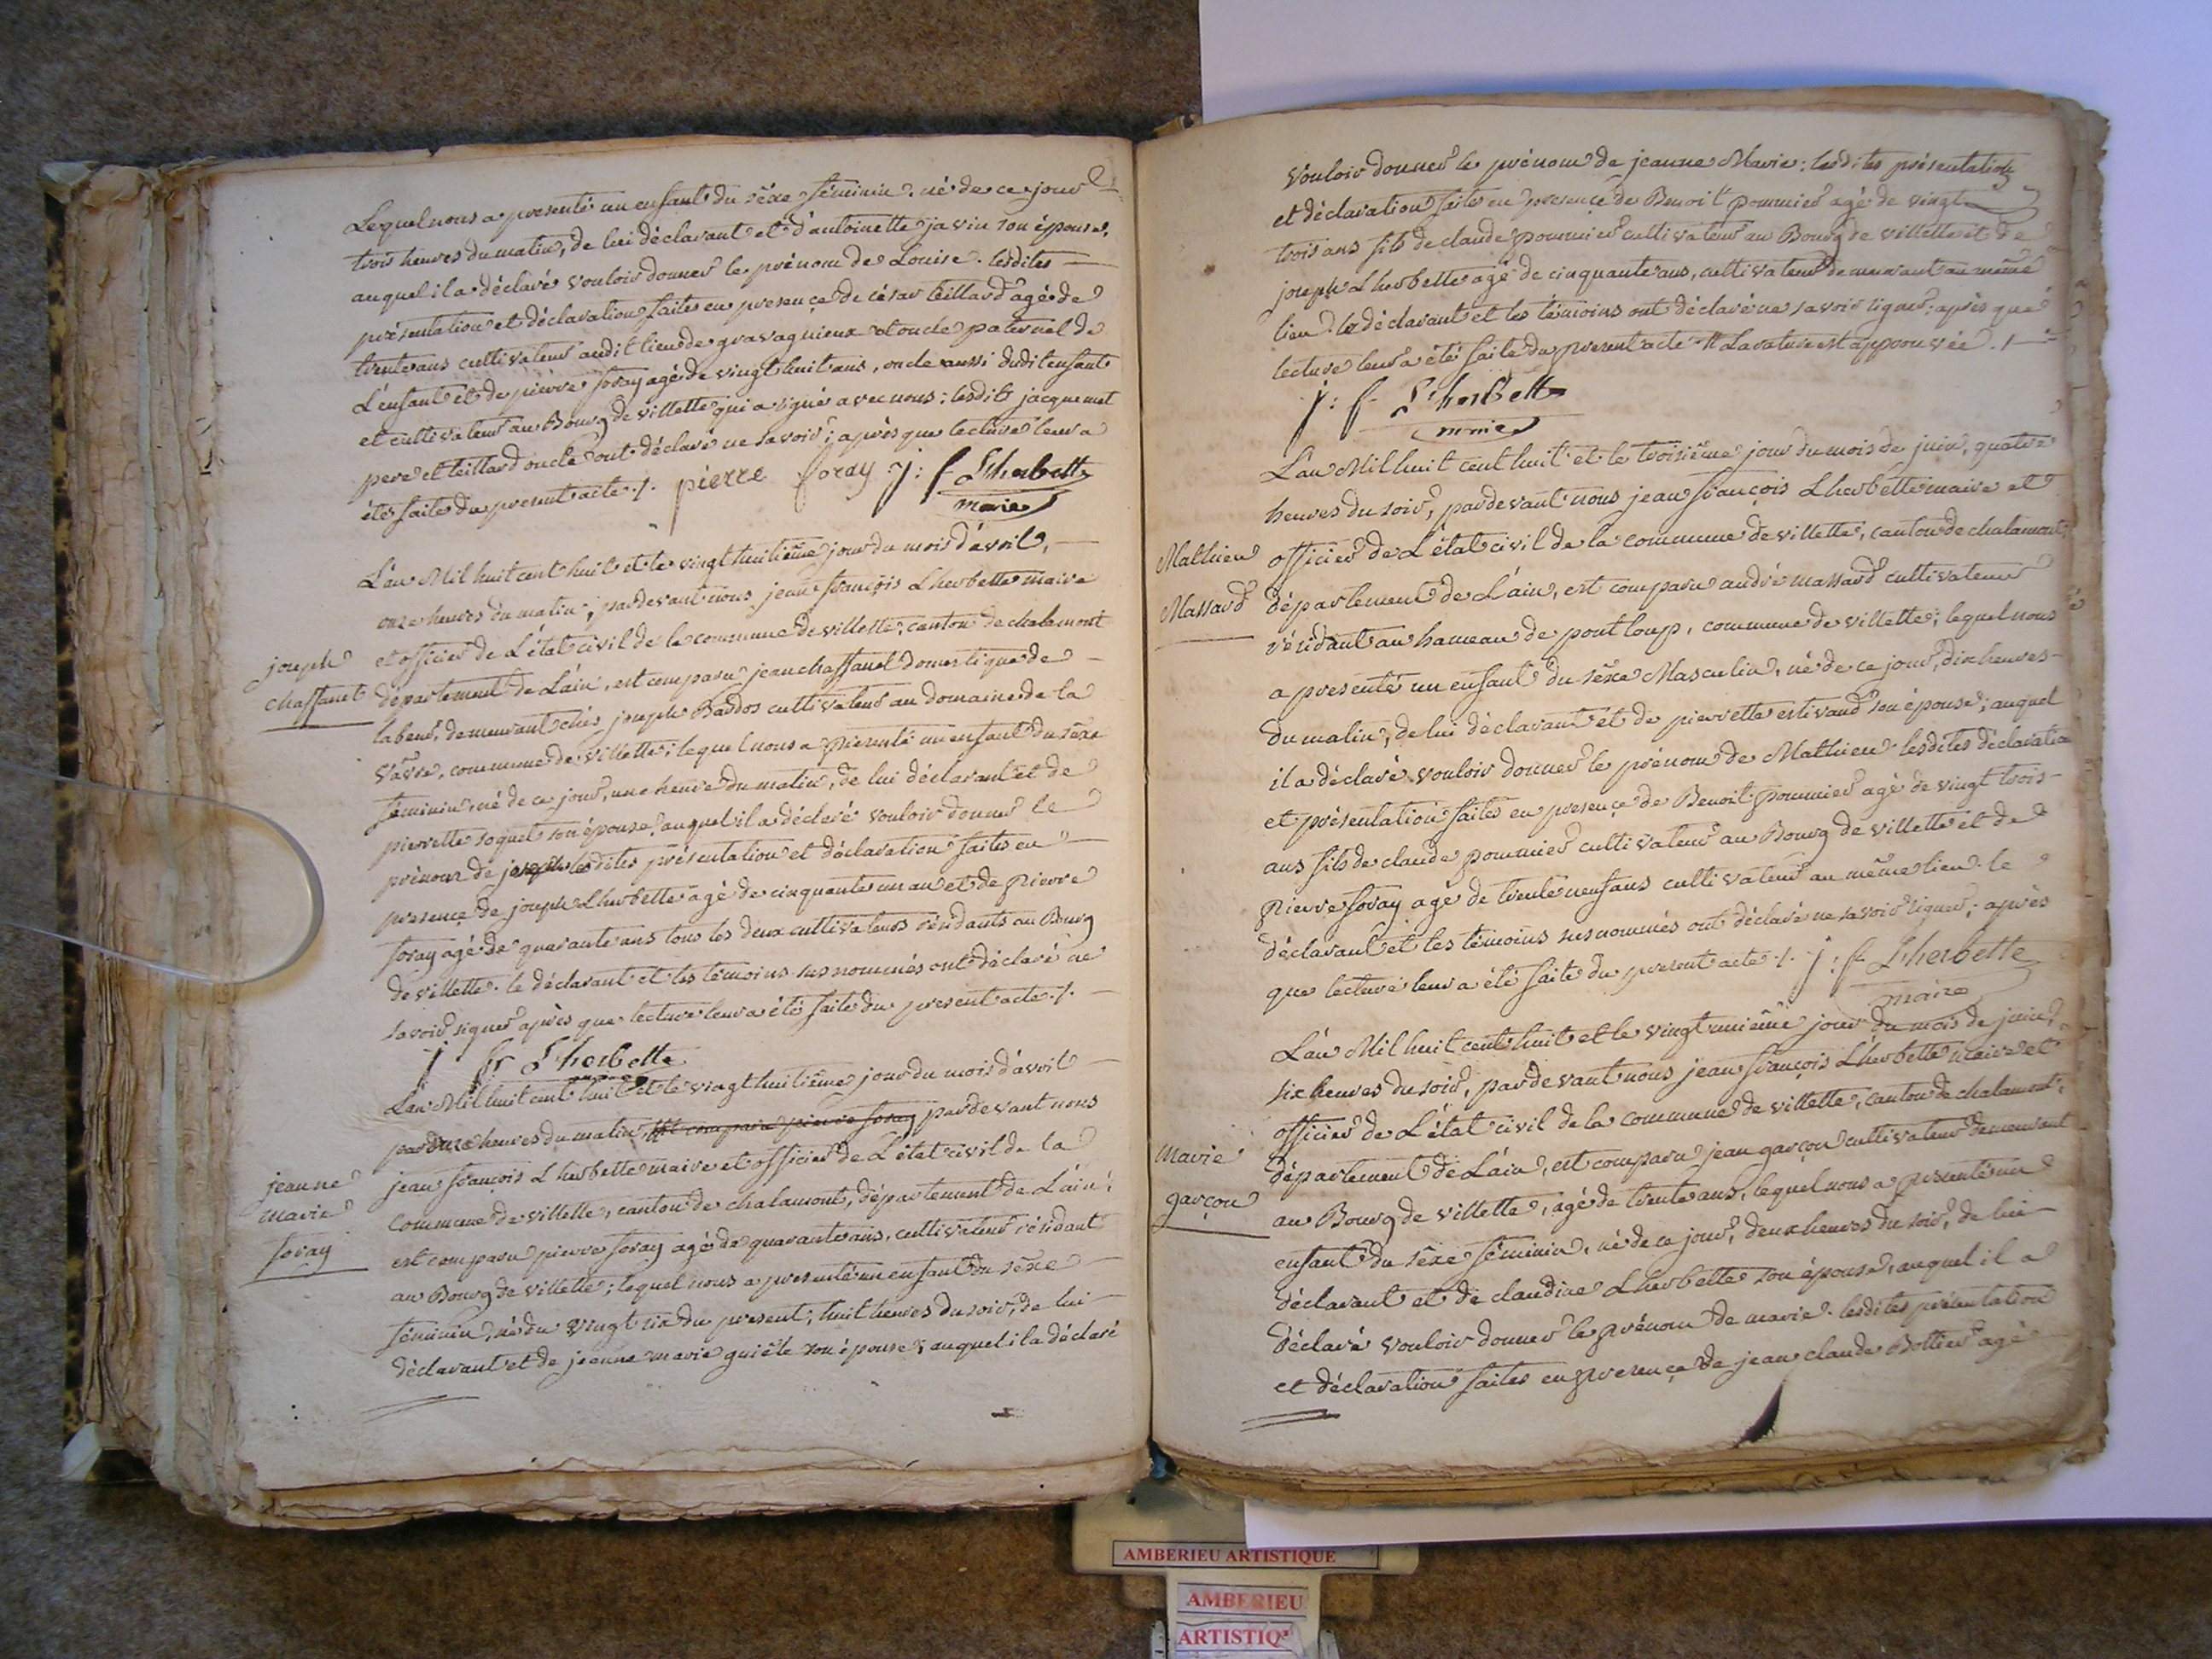 Lequel nous a presenté un enfant du séxe féminin, né de ce jour
trois heures du matin, de lui déclarant et d'antoinette javin son épouse,
auquel il a déclaré vouloir donner le prénom de Louise. lesdites
présentation et déclaration faites en presençe de césar teillard agé de
trente ans cultivateur audit lieu de gravagnieux et oncle paternel de
L'enfant et de piérre foray agé de vingt huit ans, oncle aussi dudit enfant
et cultivateur au Bourg de villette qui a signé avec nous: lesdits jacquemet
pere et teillard oncle ont déclaré ne savoir; après que lecture leur a
été faite du present acte ./. pierre foray j: f Lherbette
maire
L'an Mil huit cent huit et le vingt huitiéme jour du mois d'avril,
onze heures du matin; pardevant nous jean françois Lherbette maire
et officier de L'état civil de la commune de villette, canton de chalamont
joseph
chaffanet
département de L'ain, est comparu jean chaffanel domestique de
labeur, demeurant chés joseph Bardos cultivateur au domaine de la
vavre, commune de villette; lequel nous a presenté un enfant du séxe
féminin, né de ce jour, une heure du matin, de lui déclarant et de
pierrette soquet son épouse, auquel il a déclaré vouloir donner le
prénom de joseph lesdites présentation et déclaration faites en
presençe de joseph Lherbette agé de cinquante un an et de pierre
foray agé de quarante ans tous les deux cultivateurs résidants au Bourg
de villette. le déclarant et les témoins susnommés ont déclaré ne
savoir signer après que lecture leur a été faite du present acte ./.
j fr Lherbette
L'an Mil huit cent huit et le vingt huitiéme jour du mois d'avril
heures du matin, est comparu pierre foray pardevant nous
jean françois Lherbette maire et officier de L'état civil de la
jeanne
marie
foray
commune de villette, canton de chalamont, département de L'ain;
est comparu pierre foray agé de quarante ans, cultivateur résidant
au Bourg de villette; lequel nous a presenté un enfant du séxe
féminin, né du vingt six du present, huit heures du soir, de lui
déclarant et de jeanne marie son épouse; auquel il a déclaré
vouloir donner le prénom de jeanne Marie: lesdites présentation
et déclaration faites en presençe de Benoit pommier agé de vingt
trois ans fils de claude pommier cultivateur au Bourg de villette et de
joseph Lherbette agé de cinquante ans, cultivateur demeurant au même
lieu. le déclarant et les témoins ont déclaré ne savoir signer; après que
lecture leur a été faite du present acte La rature est approuvée ./.
j: f Lherbette
maire
L'an Mil huit cent huit et le troisiéme jour du mois de juin, quatre
heures du soir, pardevant nous jean françois Lherbette maire et
Mathieu
Massard
officier de L'état civil de la commune de villette, canton de chalamont,
département de L'ain, est comparu andré massard cultivateur
résidant au hameau de pont loup, commune de villette; lequel nous
a presenté un enfant du séxe Masculin, né de ce jour, dix heures
du matin, de lui déclarant et de pierrette estivand son épouse; auquel
il a déclaré vouloir donner le prénom de Mathieu. lesdites déclaration
et présentation faites en presençe de Benoit pommier agé de vingt trois
ans fils de claude pommier cultivateur au Bourg de villette et de
pierre foray agé de trente neuf ans cultivateur au même lieu. le
déclarant et les témoins susnommés ont déclaré ne savoir signer; après
que lecture leur a été faite du present acte ./. j: f Lherbette
maire
L'an Mil huit cent huit et le vingt uniéme jour du mois de juin,
six heures du soir, pardevant nous jean françois Lherbette maire et
officier de L'état civil de la commune de villette, canton de chalamont,
Marie
garçon
département de L'ain, est comparu jean garçon cultivateur demeurant
au Bourg de villette, agé de trente ans, lequel nous a presenté un
enfant du séxe féminin, né de ce jour, deux heures du soir, de lui
déclarant et de claudine Lherbette son épouse, auquel il a
déclaré vouloir donner le prénom de marie. lesdites présentation
et déclaration faites en presençe de jean claude Bottier agé
AMBERIEU ARTISTIQUE
AMBERIEU
ARTISTIQ